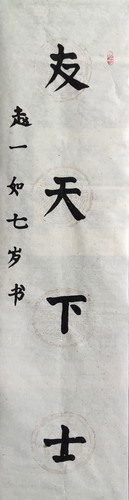 友天下士
赵一如七岁书